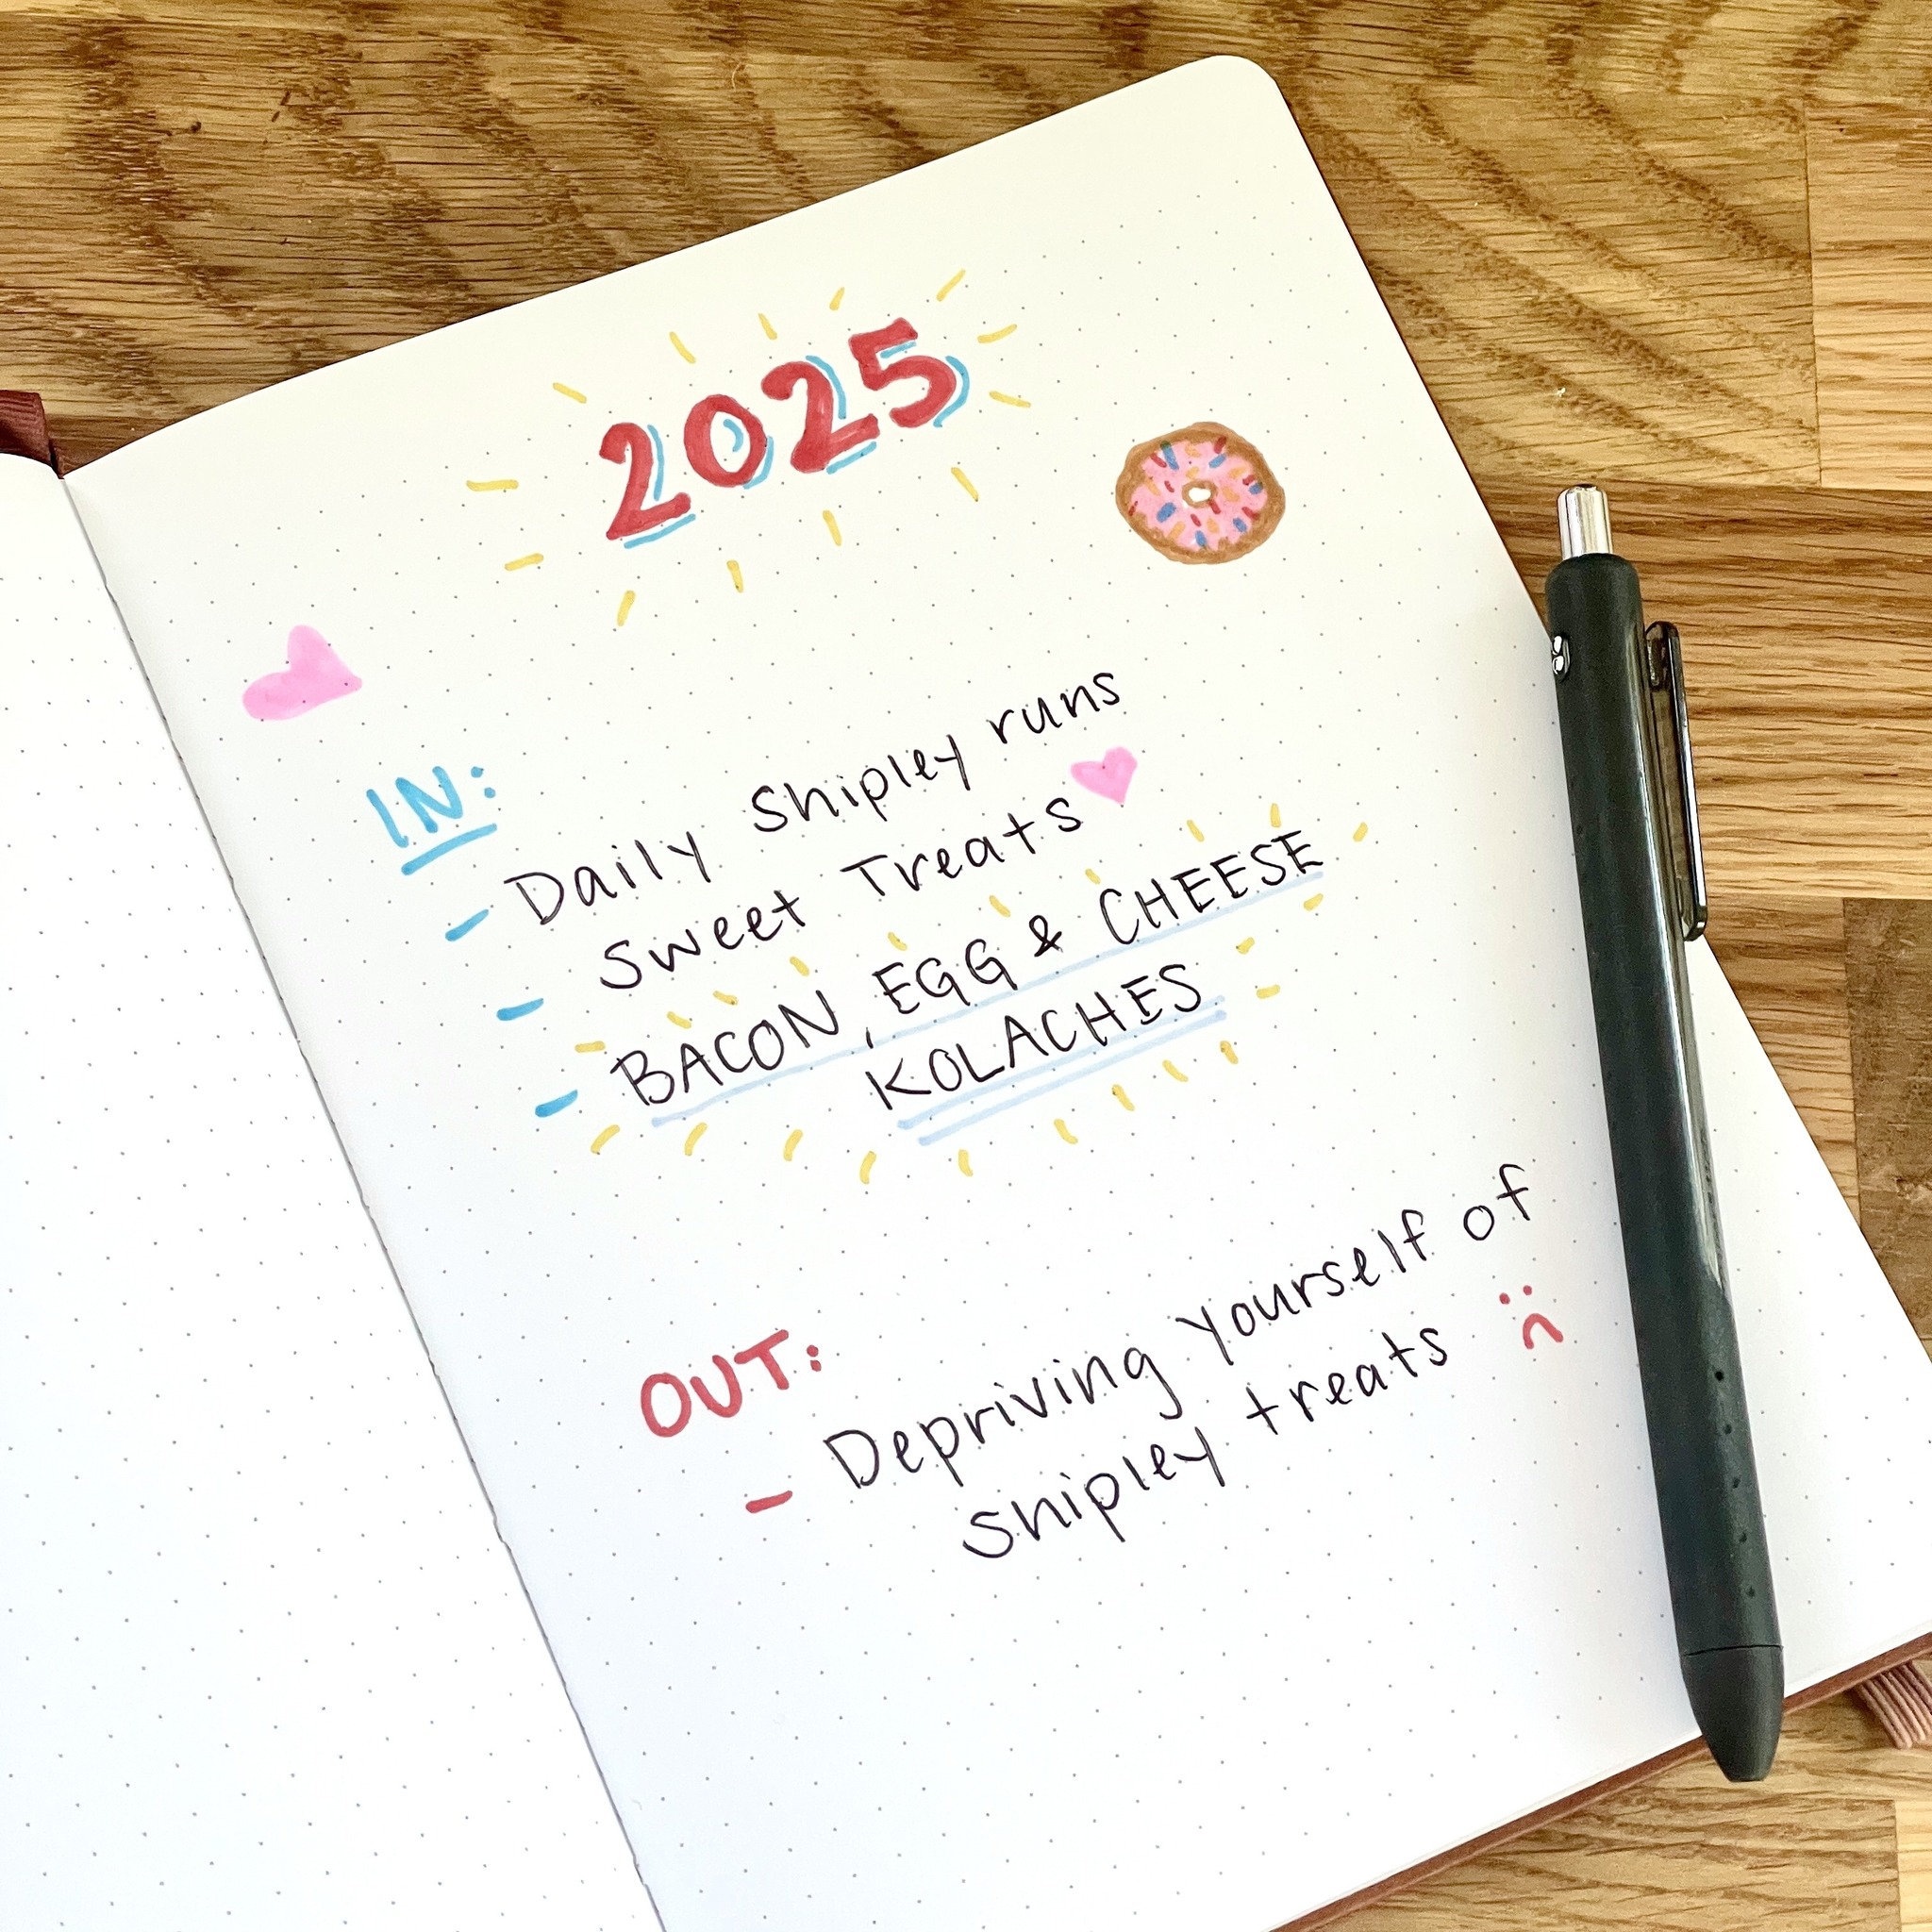 2025
IN:
- Daily Shipley runs
- Sweet Treats
- BACON, EGG & CHEESE
KOLACHES
OUT:
- Depriving yourself of
Shipley treats :(